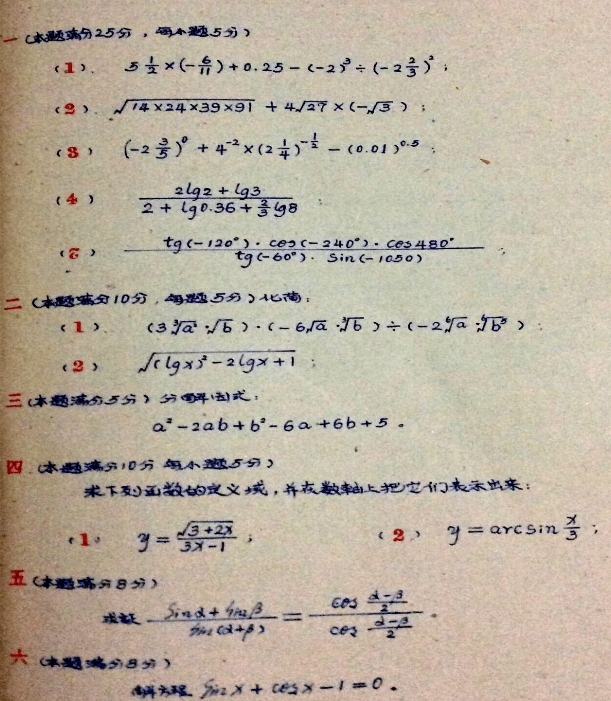 一(本题满分25分，每小题5分)
(1). 5 1/2 ×(-6/11)+0.25-(-2)³÷(-2 2/3)²;
(2). √(14×24×39×91) + 4√27 ×(-√3);
(3) (-2 3/5)⁰ + 4⁻²×(2 1/4)^(-1/2) - (0.01)^0.5;
(4) (2lg2+lg3)/(2+lg0.36+2/3 lg8)
(5) (tg(-120°)·cos(-240°)·cos480°)/(tg(-60°)·Sin(-1050));
二(本题满分10分，每题5分)化简:
(1). (3∛a²·√b)·(-6√a·∛b)÷(-2⁶√a·⁶√b⁵)
(2) √((lgx)²-2lgx+1;
三(本题满分5分) 分解因式:
a²-2ab+b²-6a+6b+5.
四(本题满分10分 每小题5分)
求下列函数的定义域,并在数轴上把它们表示出来:
(1) y=√(3+2x)/(3x-1); (2) y=arcsin x/3;
五(本题满分8分)
求证 (Sinα+Sinβ)/(Sin(α+β)) = (cos (α-β)/2)/(cos (α-β)/2).
六(本题满分8分)
解方程 Sinx+cosx-1=0.